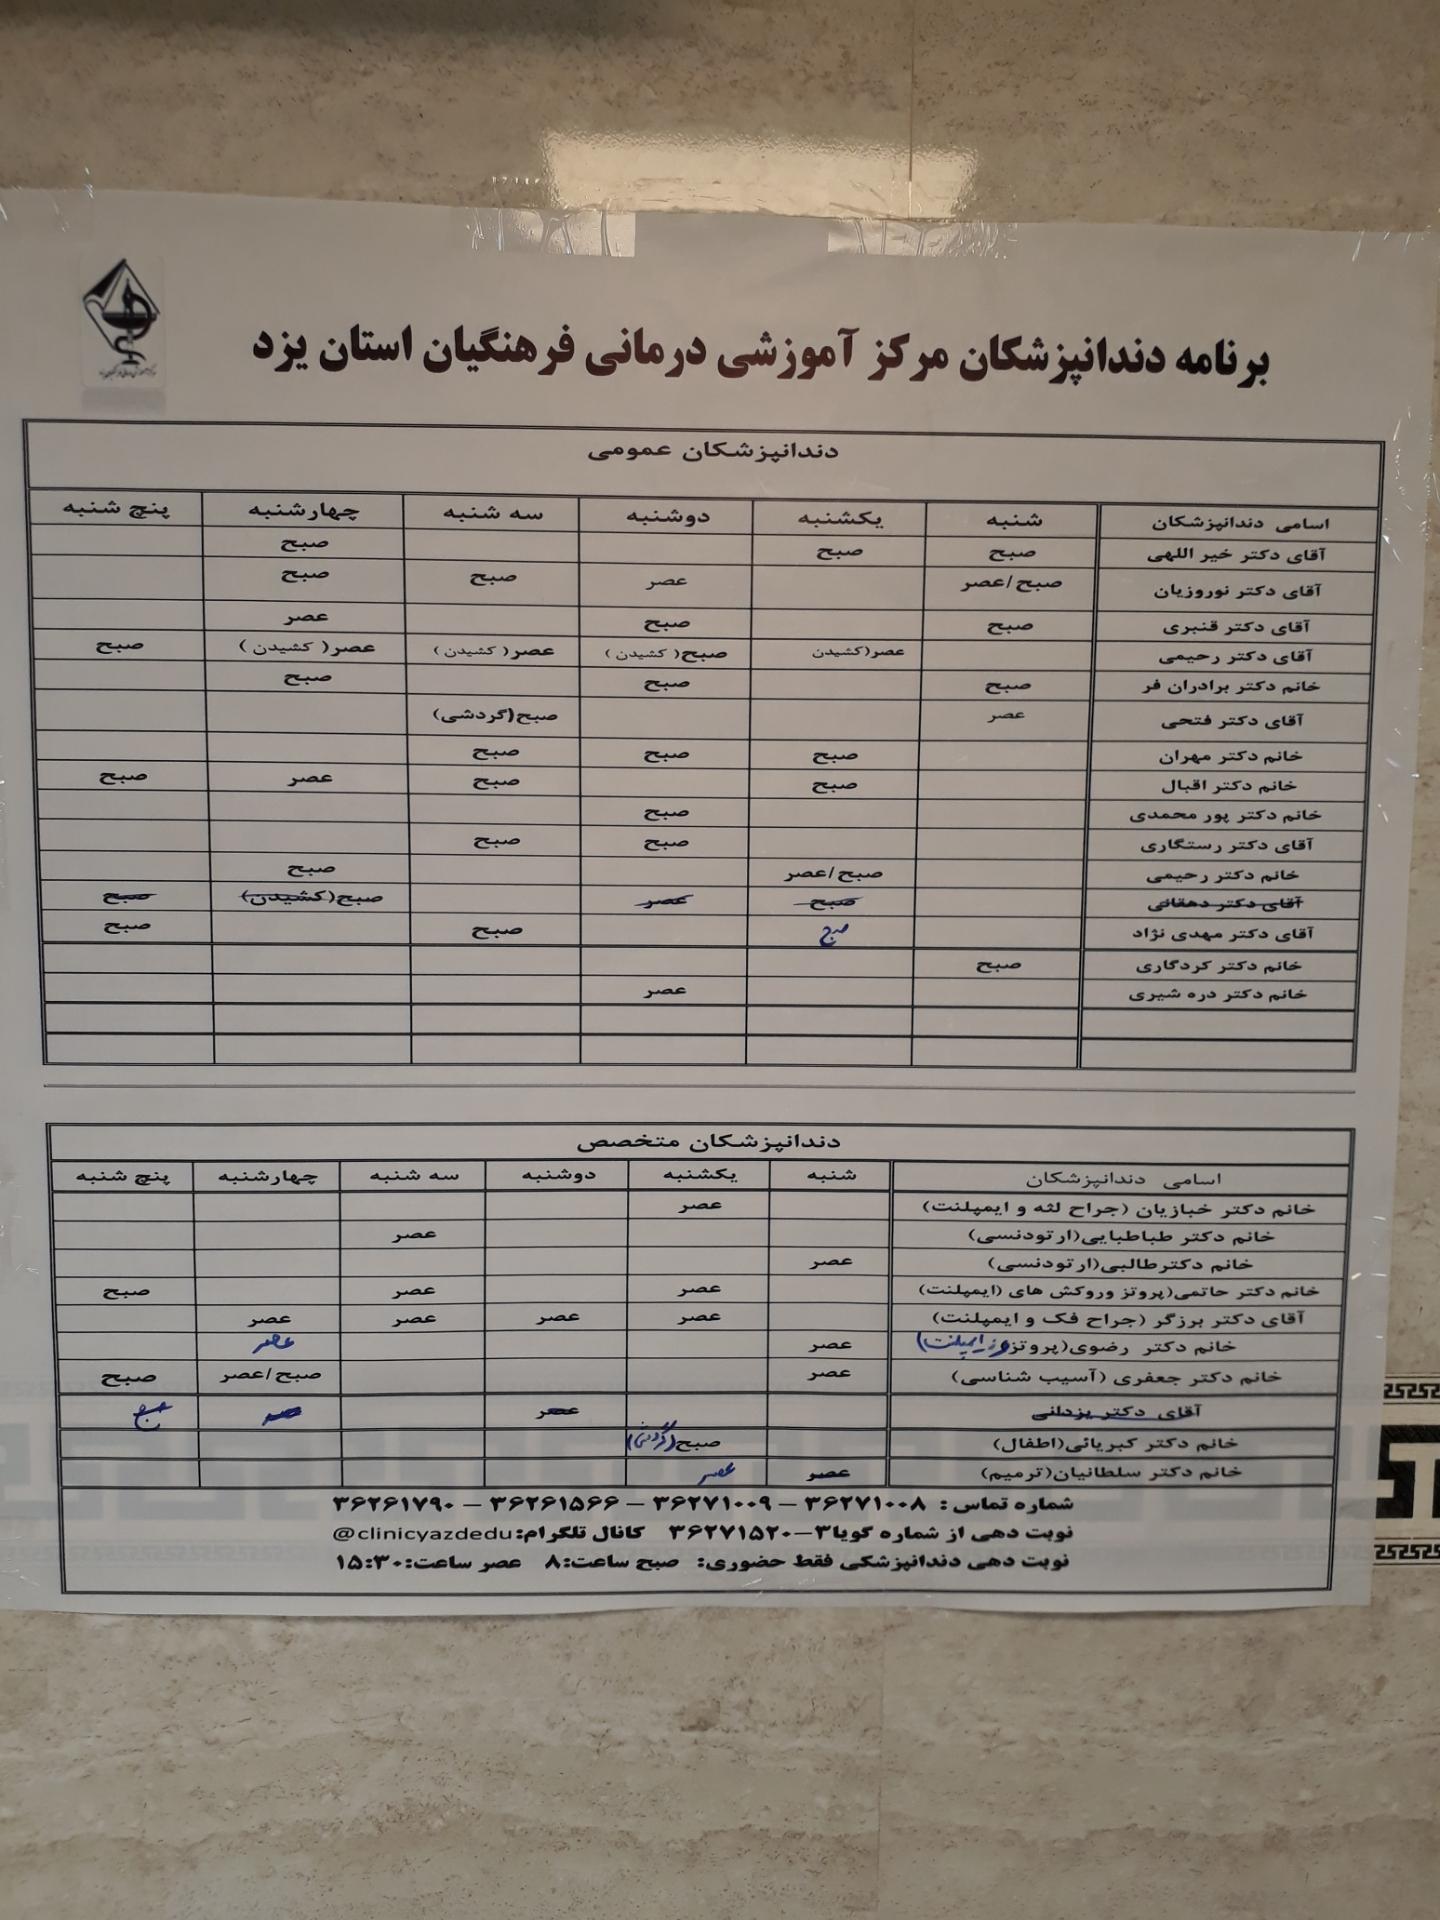 برنامه دندانپزشکان مرکز آموزشی درمانی فرهنگیان استان یزد
دندانپزشکان عمومی
اسامی دندانپزشکان شنبه یکشنبه دوشنبه سه شنبه چهارشنبه پنج شنبه
آقای دکتر خیر اللهی صبح صبح صبح
آقای دکتر نوروزیان صبح/عصر عصر صبح صبح
آقای دکتر قنبری صبح صبح عصر
آقای دکتر رحیمی عصر(کشیدن صبح( کشیدن ) عصر( کشیدن ) عصر( کشیدن ) صبح
خانم دکتر برادران فر صبح صبح صبح
آقای دکتر فتحی عصر صبح(گردشی)
خانم دکتر مهران صبح صبح صبح
خانم دکتر اقبال صبح صبح عصر صبح
خانم دکتر پور محمدی صبح
آقای دکتر رستگاری صبح صبح
خانم دکتر رحیمی صبح/عصر صبح
آقای دکتر دهقانی صبح عصر صبح(کشیدن) صبح
آقای دکتر مهدی نژاد صبح صبح صبح
خانم دکتر کردگاری صبح
خانم دکتر دره شیری عصر
دندانپزشکان متخصص
اسامی دندانپزشکان شنبه یکشنبه دوشنبه سه شنبه چهارشنبه پنج شنبه
خانم دکتر خبازیان (جراح لثه و ایمپلنت) عصر
خانم دکتر طباطبایی(ارتودنسی) عصر
خانم دکترطالبی(ارتودنسی) عصر
خانم دکتر حاتمی(پروتز وروکش های (ایمپلنت) عصر عصر صبح
آقای دکتر برزگر (جراح فک و ایمپلنت) عصر عصر عصر عصر
خانم دکتر رضوی(پروتز ایمپلنت) عصر عصر
خانم دکتر جعفری (آسیب شناسی) عصر صبح/عصر صبح
آقای دکتر یزدانی عصر صبح
خانم دکتر کبریائی(اطفال) صبح(گردشی)
خانم دکتر سلطانیان(ترمیم) عصر عصر
شماره تماس : ۳۶۲۷۱۰۰۸ – ۳۶۲۷۱۰۰۹ – ۳۶۲۶۱۵۶۶ – ۳۶۲۶۱۷۹۰
نوبت دهی از شماره گویا۳–۳۶۲۷۱۵۲۰ کانال تلگرام:@clinicyazdedu
نوبت دهی دندانپزشکی فقط حضوری: صبح ساعت:۸ عصر ساعت:۱۵:۳۰